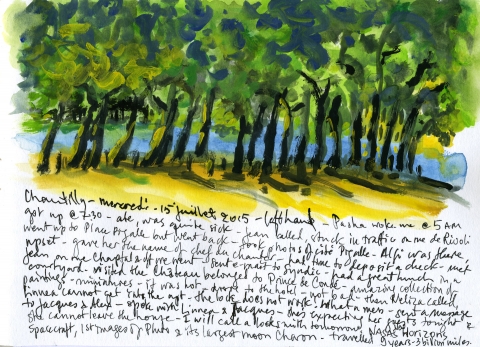 Chantilly - mercredi - 15 juillet 2015 - left hand - Pasha woke me @ 5 AM
got up @ 7:30 - ate - was quite sick - Jean called, stuck in traffic on rue de Rivoli
went up to Place Pigalle but went back - took photos of cité Pigalle - Alfi was there,
upset - gave her the name of chef de chantier - had time to deposit a check - met
Jean on rue Chaptal & off we went - sent e-mail to syndic - had a great lunch in a
courtyard - visited the Château belonged to Prince de Condé - amazing collection of
paintings - miniatures - it was hot - drove to the hotel - not bad - then Veliza called,
Linnea cannot get into the apt - the lock does not work - what a mess - sent a message
to Jacques & Alex - spoke with Linnea & Jacques - she's expecting guests tonight &
still cannot leave the house - I will call a locksmith tomorrow. NASA's Horizons
Spacecraft, 1st images of Pluto & its largest moon Charon - travelled 9 years - 3 billion miles.